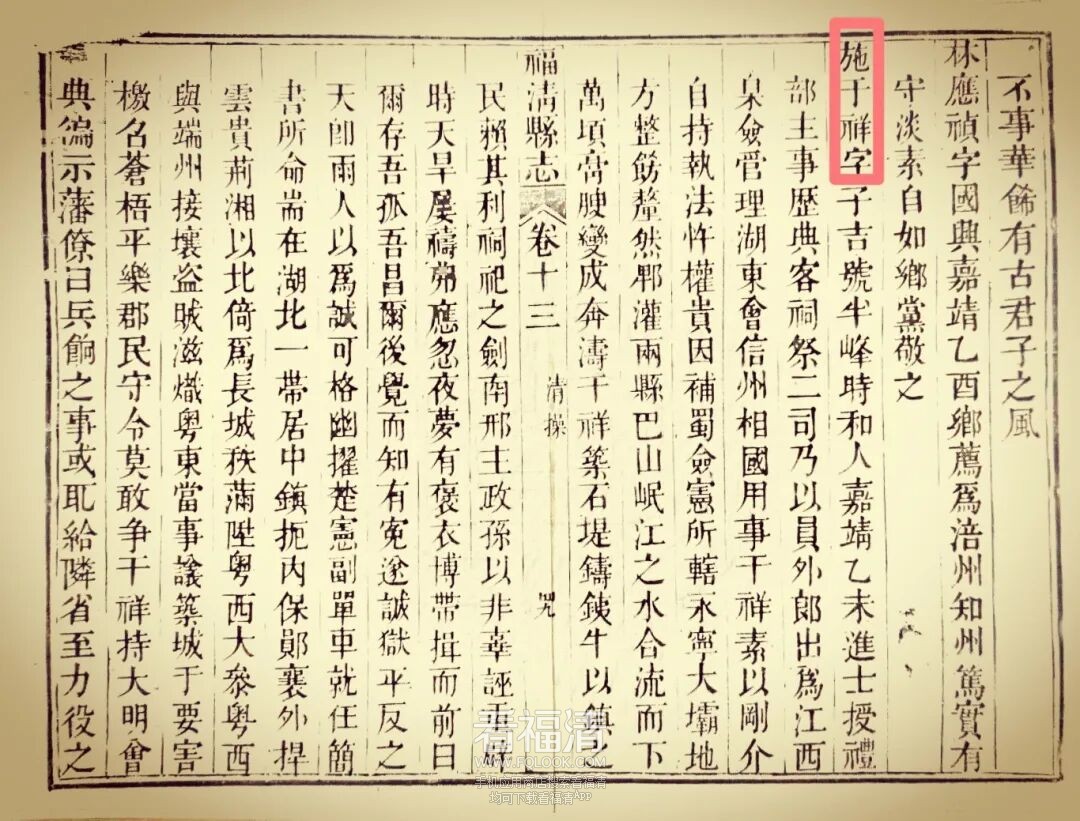 不事華餙有古君子之風
林應禎字國興嘉靖乙酉鄉薦爲涪州知州篤實有
守淡素自如鄉黨敬之
施千祥字子吉號半峰時和人嘉靖乙未進士授禮
部主事歷典客祠祭二司乃以員外郎出爲江西
臬僉管理湖東會信州相國用事千祥素以剛介
自持執法忤權貴因補蜀僉憲所轄永寧大壩地
方整飭釐然郫灌兩縣巴山岷江之水合流而下
萬頃膏腴變成奔濤千祥築石堤鑄鉄牛以鎮之
福清縣志 卷十三 清操
民賴其利祠祀之劍南邢主政孫以非辜誣重
時天旱屢禱弗應忽夜夢有褒衣博帶揖而前曰
爾存吾孤吾昌爾後覺而知有寃遂誠獄平反之
天卽雨人以爲誠可格幽擢楚憲副單車就任簡
書所命耑在湖北一帶居中鎮扼內保鄖襄外捍
雲貴荊湘以北倚爲長城秩滿陞粤西大叅粤西
與端州接壤盗賊滋熾粤東當事議築城于要害
檄名蒼梧平樂郡民守令莫敢争千祥持大明會
典徧示藩僚曰兵餉之事或耴給隣省至力役之
看福清
WWW.FQLOOK.COM
手机应用商店搜索看福清
均可下载看福清App